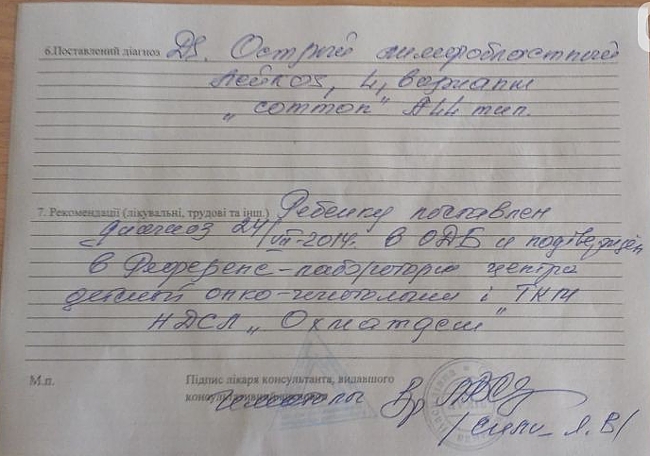 6.Поставлений діагноз Ds. Острый лимфобластный
лейкоз, L1, варианты
„common" ALL тип.
7. Рекомендації (лікувальні, трудові та інш.) Ребенку поставлен
диагноз 24/VII-2014г. в ОДБ и подтвержден
в Референс-лаборатории центра
детской онко-гематологии і ТКМ
НДСЛ „Охматдет"
М.п.
Підпис лікаря консультанта, видавшого
гематолог Вр
/ Я. В/